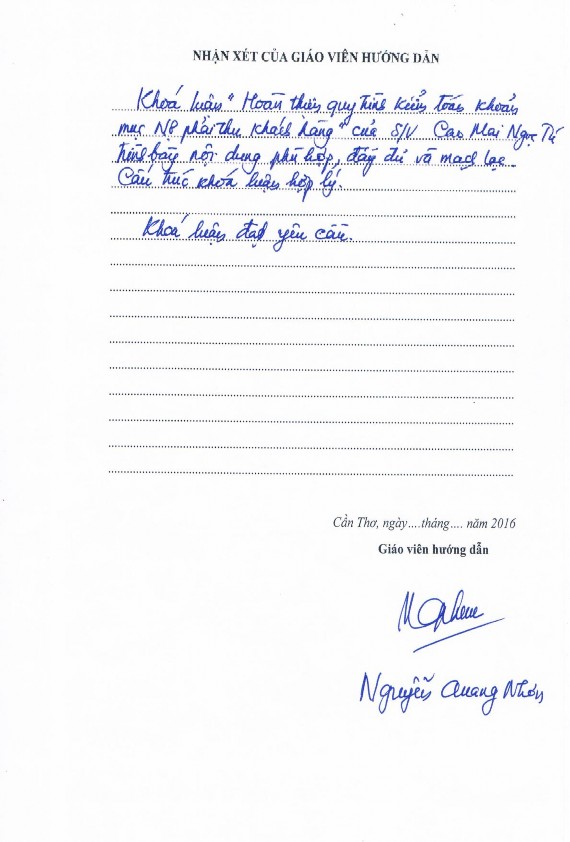 NHẬN XÉT CỦA GIÁO VIÊN HƯỚNG DẪN
Khoá luận "Hoàn thiện quy trình kiểm toán khoản
mục Nợ phải thu khách hàng" của S/V Cao Mai Ngọc Tú
trình bày nội dung phù hợp, đầy đủ và mạch lạc.
Cấu trúc khoá luận hợp lý.
Khoá luận đạt yêu cầu.
Cần Thơ, ngày....tháng.... năm 2016
Giáo viên hướng dẫn
Nguyễn Quang Nhơn